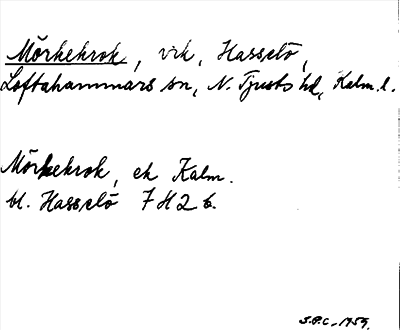 Mörkekrok, vik, Hasselö,
Loftahammars sn, N. Tjusts hd, Kalm. l.
Mörkekrok, ek Kalm.
bl. Hasselö 7 H 2 b.
S.P.C. 1959.